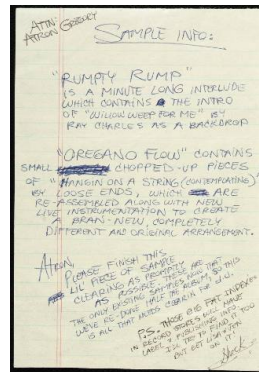 ATTN:
ATRON GREGORY
SAMPLE INFO:
"RUMPTY RUMP"
IS A MINUTE LONG INTERLUDE
WHICH CONTAINS THE INTRO
OF "WILLOW WEEP FOR ME" BY
RAY CHARLES AS A BACKDROP
"OREGANO FLOW" CONTAINS
SMALL CHOPPED-UP PIECES
OF "HANGIN ON A STRING (CONTEMPLATING)"
BY LOOSE ENDS, WHICH ARE
RE-ASSEMBLED ALONG WITH NEW
LIVE INSTRUMENTATION TO CREATE
A BRAN-NEW COMPLETELY
DIFFERENT AND ORIGINAL ARRANGEMENT.
ATRON,
PLEASE FINISH THIS
LIL PIECE OF SAMPLE
CLEARING AS PROMPTLY
AS POSSIBLE. THESE ARE
THE ONLY EXISTING SAMPLES NOW THAT
WE'RE RE-DONE HALF THE ALBUM, SO THIS
IS ALL THAT NEEDS CLEARIN FOR D.U.
P.S. THOSE BIG FAT INDEXES
IN RECORD STORES WILL HAVE
LABEL & PUBLISHING INFO.
I'LL TRY TO FIND IT TOO
BUT GET LISA & TEN
ON IT!
Shock